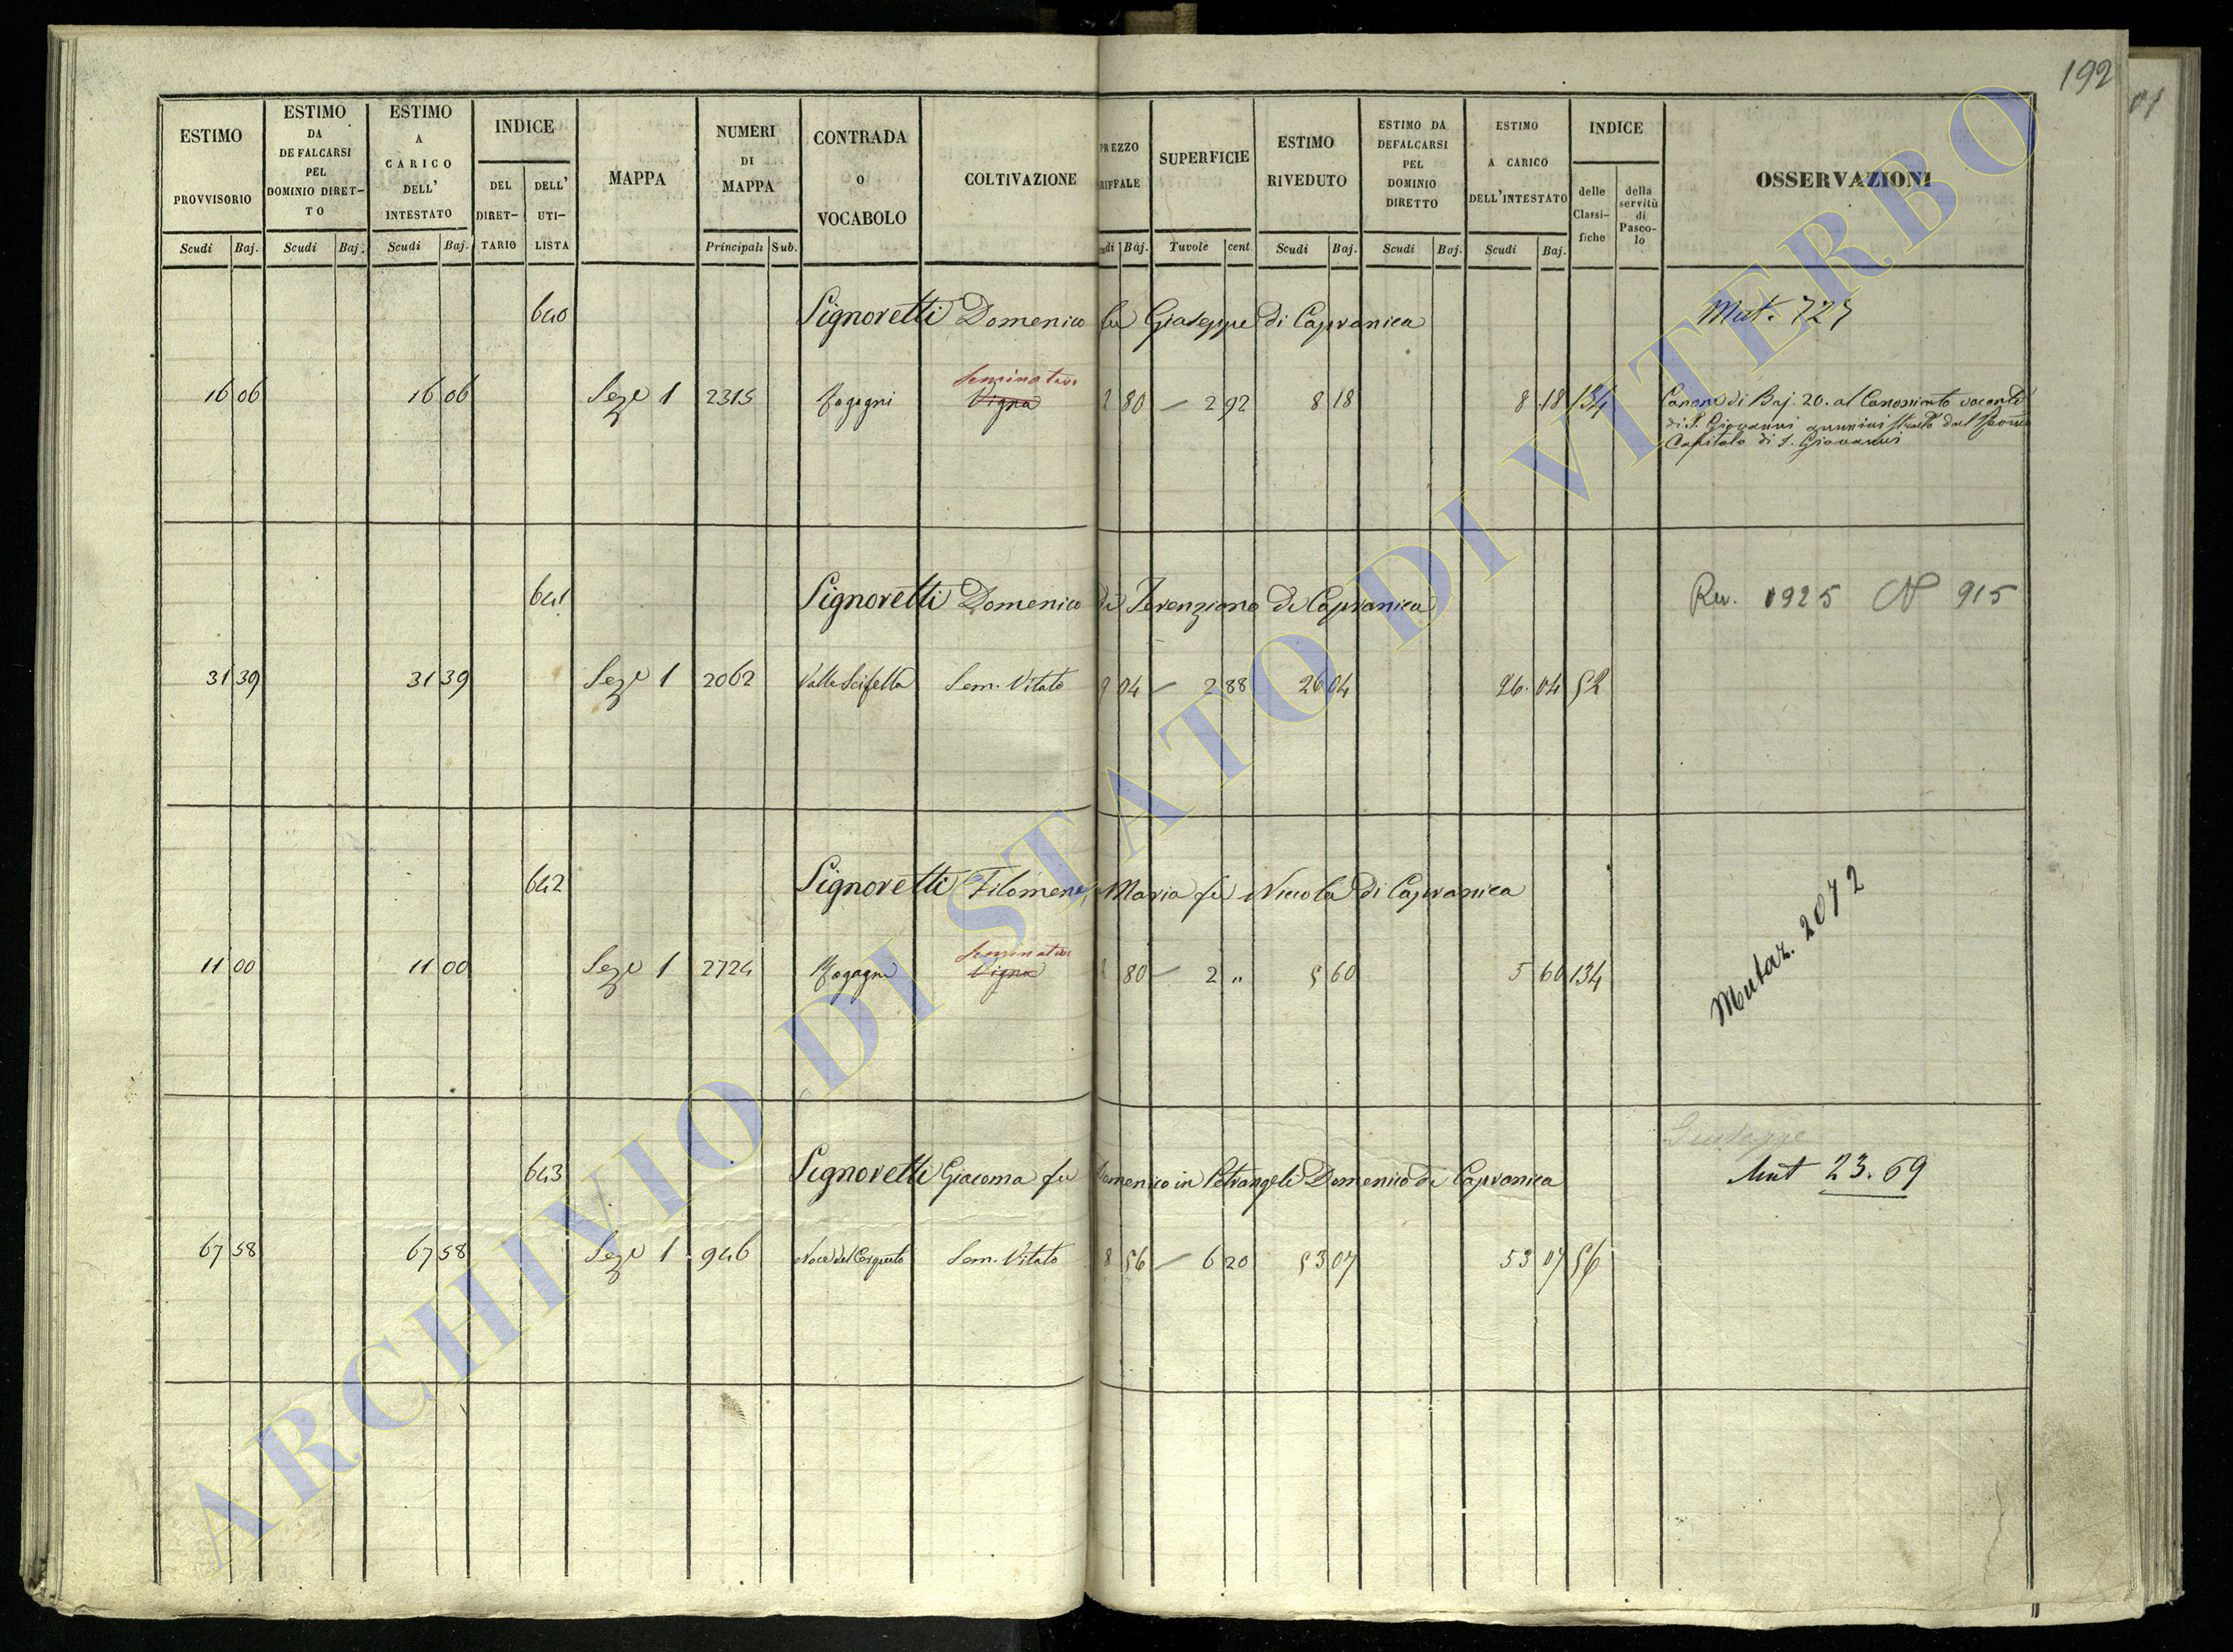 192
ESTIMO PROVVISORIO
ESTIMO DA DEFALCARSI PEL DOMINIO DIRETTO
ESTIMO A CARICO DELL' INTESTATO
INDICE
DEL DIRETTARIO
DELL' UTILISTA
MAPPA
NUMERI DI MAPPA
CONTRADA O VOCABOLO
COLTIVAZIONE
PREZZO RIFFALE
SUPERFICIE
ESTIMO RIVEDUTO
ESTIMO DA DEFALCARSI PEL DOMINIO DIRETTO
ESTIMO A CARICO DELL'INTESTATO
INDICE
delle Classifiche
della servitù di Pascolo
OSSERVAZIONI
Scudi Baj. Scudi Baj. Scudi Baj. Principali Sub. udi Baj. Tuvole cent Scudi Baj. Scudi Baj. Scudi Baj.
640 Signoretti Domenico fu Giuseppe di Capranica Mut. 727
Seminativo
16 06 16 06 Seze 1 2315 Fogagni Vigna 2 80 — 2 92 8 18 8 18 134 Canone di Baj. 20. al Canonicato vacante
di S. Giovanni amministrato dal
Capitolo di S. Giovanni
641 Signoretti Domenico di Terenziano di Capranica Rev. 1925 N 915
31 39 31 39 Seze 1 2062 Valle Scifella Sem. Vitato 9 04 — 2 88 26 04 26. 04 52
642 Signoretti Filomena, Maria fu Niccola di Capranica
Seminativo
11 00 11 00 Seze 1 2724 Fogagne Vigna 2 80 — 2 " 5 60 5 60 134 Mutaz. 2072
Giuseppe
643 Signoretti Giacoma fu Domenico in Petrangeli Domenico di Capranica Mut 23.69
67 58 67 58 Seze 1 946 Noce del Cerqueto Sem. Vitato 8 56 — 6 20 53 07 53 07 56
ARCHIVIO DI STATO DI VITERBO